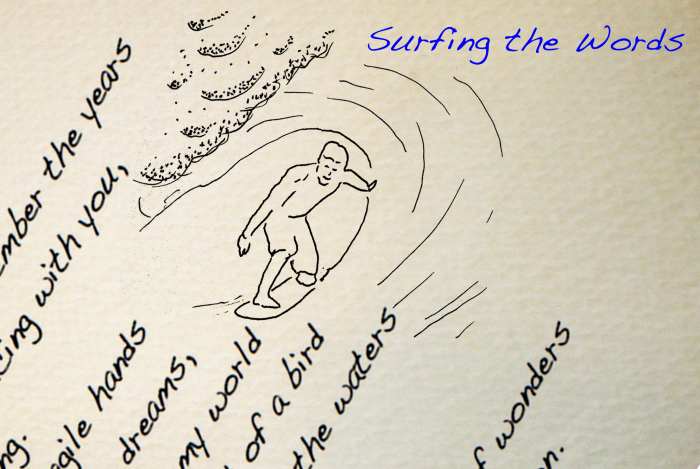 Surfing the Words
the years
with you,
hands
dreams,
my world
of a bird
the waters
wonders